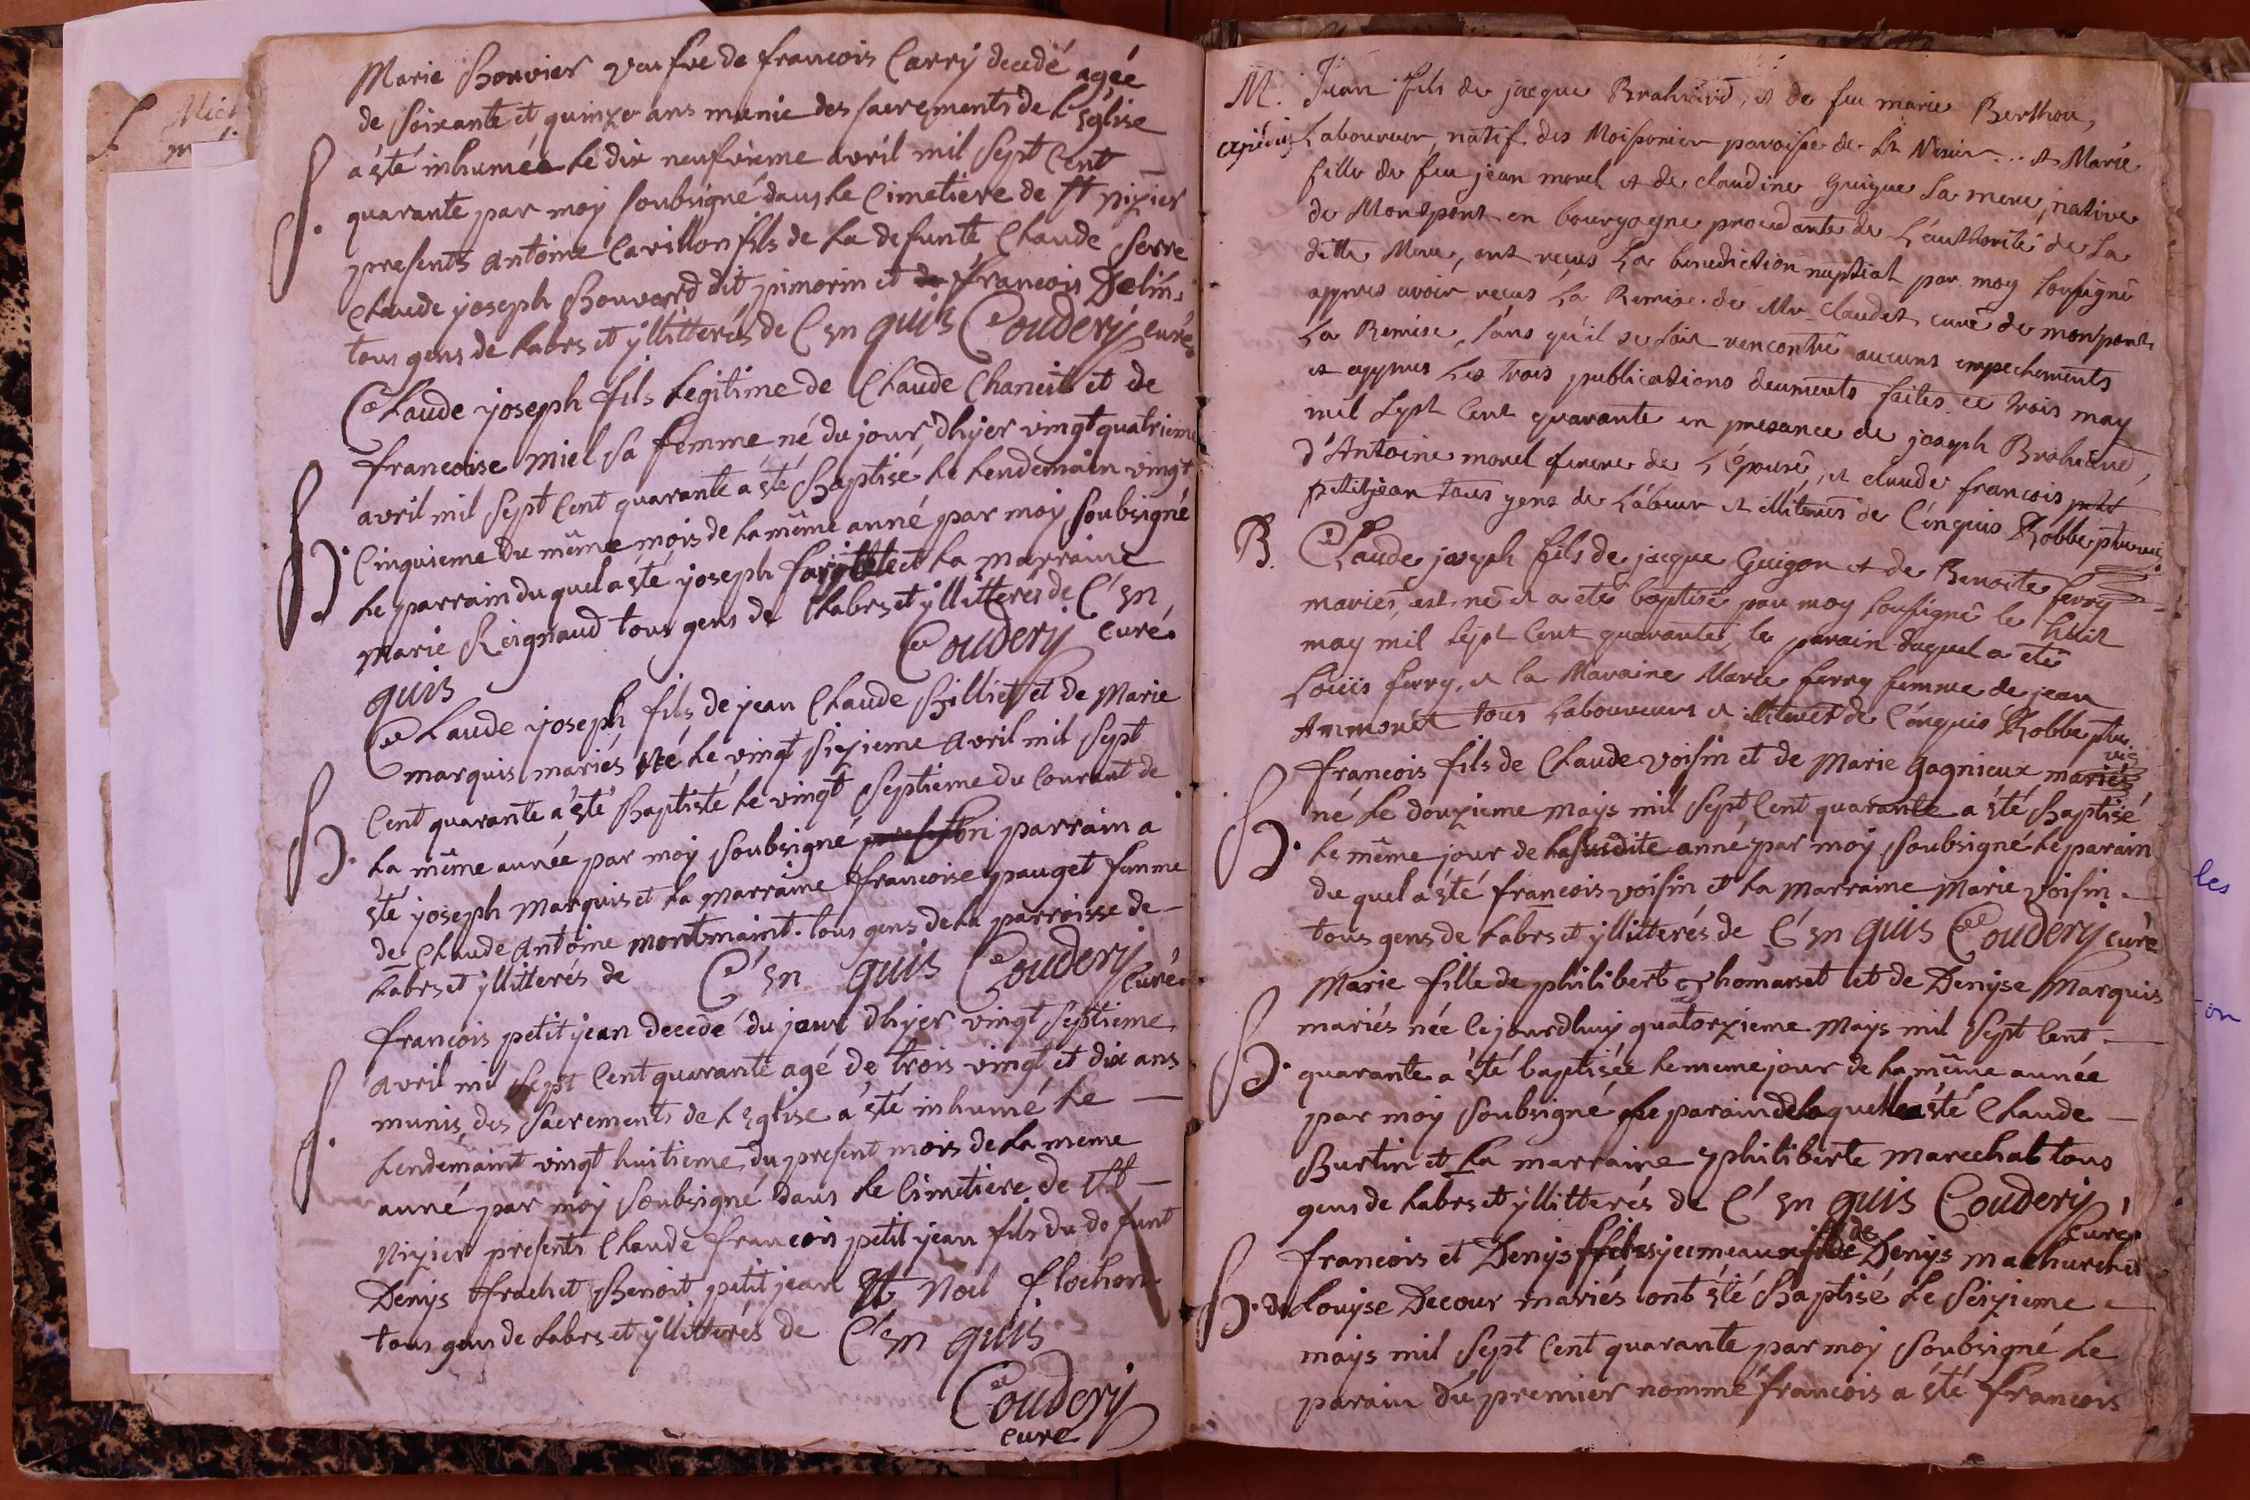 Marie Bouvier veufve de francois Carrÿ decedé agée
de soixante et quinze ans munie des sacrements de L'Eglise
a été inhumée Le dix neufvieme avril mil sept Cent
S. quarante par moÿ soubsigné dans Le Cimetiere de St nizier
presents Antoine Carillon fils de La defunte Claude Serre
Claude joseph Bouvard dit pimorin et de francois Delin
tous gens de Labrs et ÿllitterés de C'En quis Couderÿ curé
Claude joseph fils Legitime de Claude Chanel et de
francoise miel sa femme, né du jour d'hÿer vingt quatrieme
avril mil sept Cent quarante a été Baptisé Le Lendemain vingt
B. Cinquieme du même mois de La même anné par moÿ soubsigné
Le parrain du quel a été joseph et La marraine
marie Reignaud tous gens de Labrs et ÿllitterés de C'En
quis Couderÿ curé
Claude joseph fils de jean Claude Billiet et de Marie
marquis mariés Né Le vingt sixieme Avril mil sept
B. Cent quarante a été Baptisté Le vingt septieme du Courant de
La même année par moÿ soubsigné son parrain a
été joseph Marquis et La Marraine francoise pauget femme
de Claude Antoine montmaint. tous gens de La parroisse de
Labrs et ÿllitterés de C'En quis Couderÿ Curé
francois petitjean decedé du jour d'hÿer vingt septieme
avril mil sept Cent quarante agé de trois vingt et dix ans
S. munis des Sacrements de L'Eglise a été inhumé Le
Lendemaint vingt huitieme du present mois de La meme
anné par moÿ soubsigné dans Le Cimetiere de St
Nizier presents Claude francois petitjean fils du defunt
Denÿs frachet Benoit petitjean et Noel flochon
tous gens de Labrs et ÿllitterés de C'En quis
Couderÿ
curé
M. Jean fils de jacque Brahuënd, et de feu marie Berthou,
expédié Laboureur, natif des Moisonier paroisse de St Nisier.. et Marie
fille de feu jean morel et de claudine Guigue sa mere, native
de Montpont en bourgogne procedante de L'authorité de La
ditte Mere, ont reçus La benediction nuptial par moy soussigné
appres avoir reçus La Remise de Mr Claudet curé de monpont
La Remise, sans qu'il se soit rencontré aucuns empechements
et appres Les trois publications deuments faites ce trois may
mil sept Cent quarante en presance de joseph Brahuënd,
d'Antoine morel frere de L'épouse, et claude francois petit
petitjean tous gens de Labeur et illiterés de Cenquis Robbe ptre vic
B. Claude joseph fils de jacque Guigon et de Benoite ferry
mariés, est né et a eté baptisé par moy soussigné le huit
may mil sept Cent quarante, le parain duquel a eté
Loüis ferry, et la Maraine Marie ferry femme de jean
Ammonet tous Laboureurs et illiterés de Cenquis Robbe ptre
vic
francois fils de Claude voisin et de Marie gagnieux mariés
né Le douzieme Maÿs mil sept Cent quarante a été Baptisé
B. Le même jour de La susdite anné par moÿ soubsigné Le parain
du quel a été francois voisin et La Marraine Marie voisin
tous gens de Labrs et ÿllitterés de C'En quis Couderÿ curé
Marie fille de philibert thomaset et de Denÿse Marquis
mariés née Le jourdhuÿ quatorzieme Maÿs mil sept Cent
B. quarante a été baptisée Le meme jour de La même année
par moÿ soubsigné Le parain de La quelle a été Claude
Burtin et La marraine philiberte Marechal tous
gens de Labrs et ÿllitterés de C'En quis Couderÿ
Curé
francois et Denÿs jumeaux de Denÿs machurel et
B. de Louÿse Decour mariés ont été Baptisé Le Seizieme
maÿs mil sept Cent quarante par moÿ soubsigné Le
parain du premier nommé francois a été francois
les
on